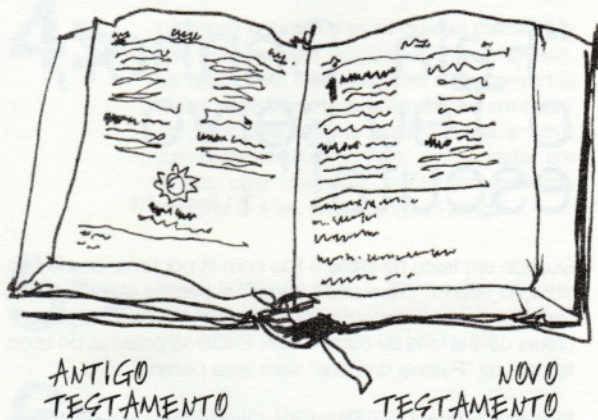 ANTIGO
TESTAMENTO
NOVO
TESTAMENTO